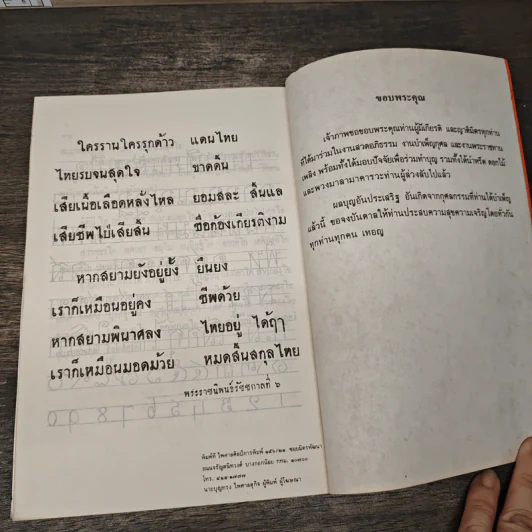 ใครรานใครรุกด้าว แดนไทย
ไทยรบจนสุดใจ ขาดดิ้น
เสียเนื้อเลือดหลั่งไหล ยอมสละ สิ้นแล
เสียชีพไป่เสียสิ้น ชื่อก้องเกียรติงาม
หากสยามยังอยู่ยั้ง ยืนยง
เราก็เหมือนอยู่คง ชีพด้วย
หากสยามพินาศลง ไทยอยู่ ได้ฤา
เราก็เหมือนมอดม้วย หมดสิ้นสกุลไทย
พระราชนิพนธ์รัชกาลที่ ๖
พิมพ์ที่ ไพศาลศิลป์การพิมพ์ ซอยมิตรพัฒนา
ถนนจรัญสนิทวงศ์ บางกอกน้อย กทม.
โทร.
นายบุญทรง ไพศาลธุกิจ ผู้พิมพ์ ผู้โฆษณา
ขอบพระคุณ
เจ้าภาพขอขอบพระคุณท่านผู้มีเกียรติ และญาติมิตรทุกท่าน
ที่ได้มาร่วมในงานสวดอภิธรรม งานบำเพ็ญกุศล และงานพระราชทาน
เพลิง พร้อมทั้งได้มอบปัจจัยเพื่อร่วมทำบุญ รวมทั้งได้นำหรีด ดอกไม้
และพวงมาลามาคารวะท่านผู้ล่วงลับไปแล้ว
ผลบุญอันประเสริฐ อันเกิดจากกุศลกรรมที่ท่านได้บำเพ็ญ
แล้วนี้ ขอจงบันดาลให้ท่านประสบความสุขความเจริญโดยทั่วกัน
ทุกท่านทุกคน เทอญ